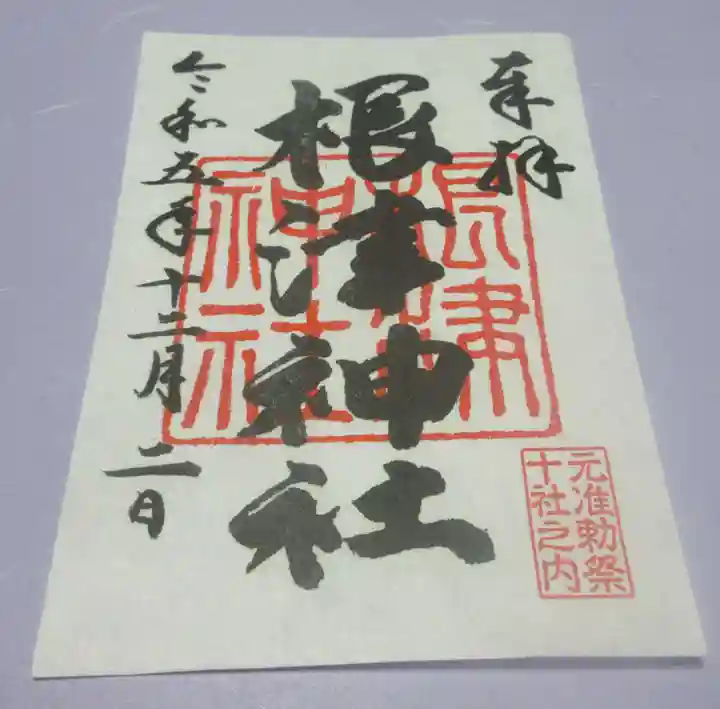 奉拝
根津神社
根津神社
令和五年十二月二日
元准勅祭
十社之内